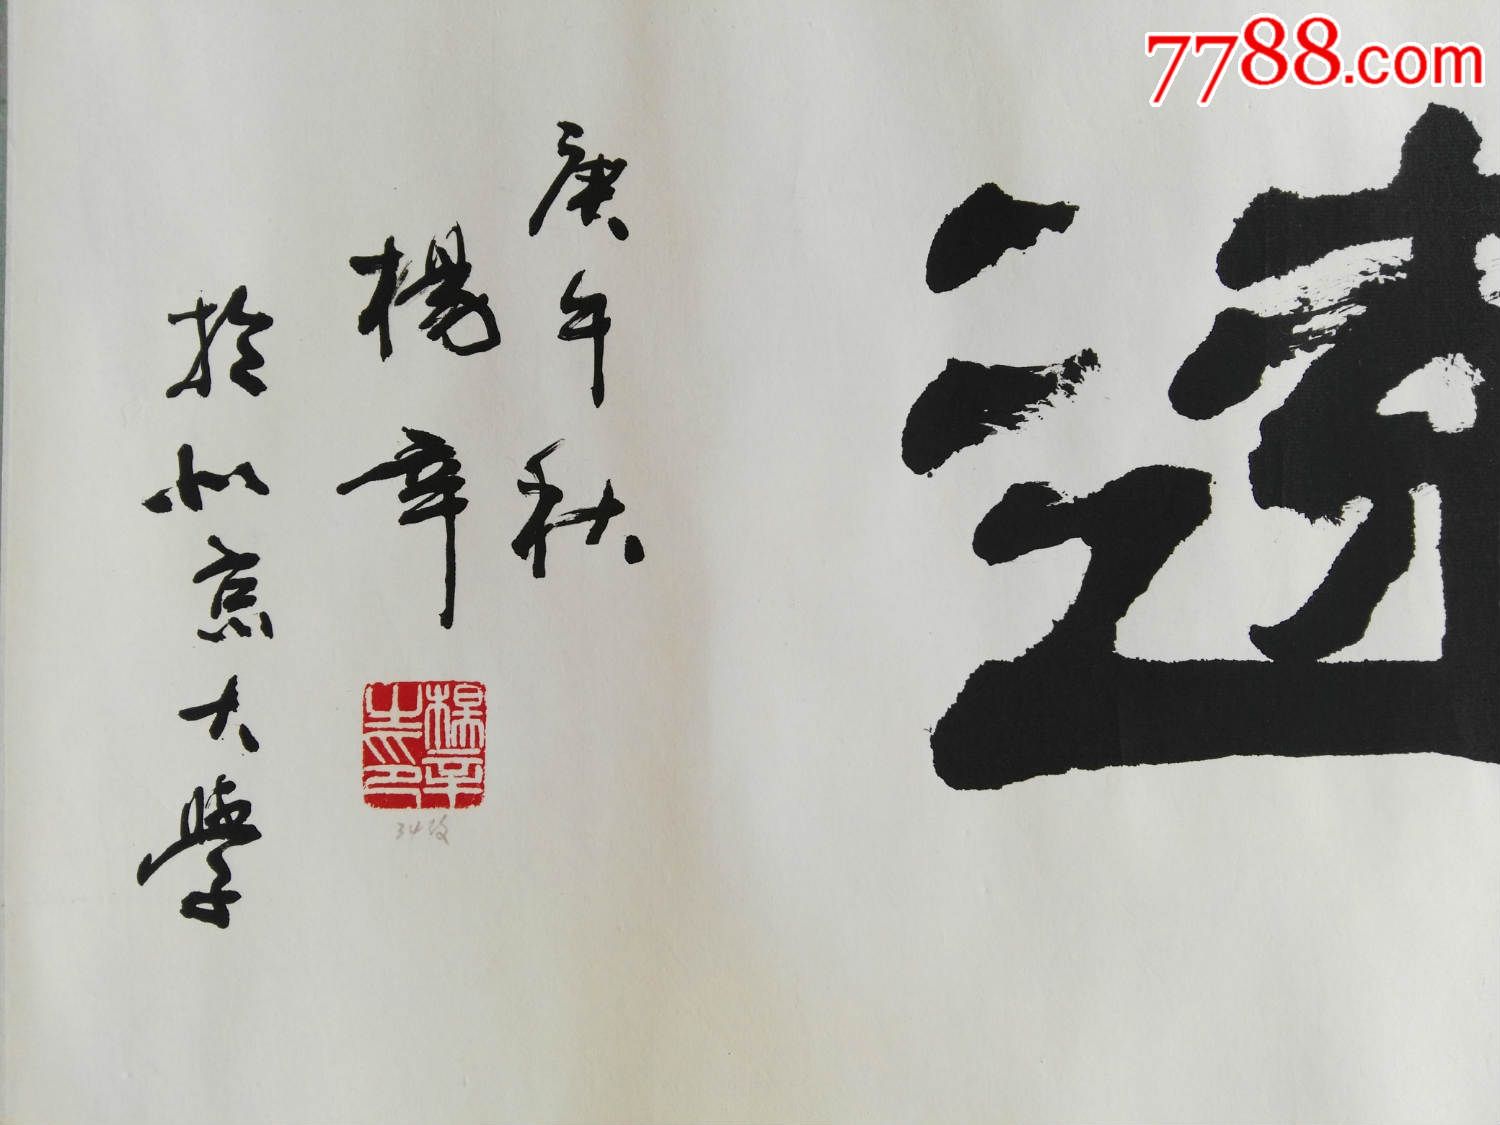 7788.com
庚午秋
楊辛
於北京大學
楊辛之印
34改